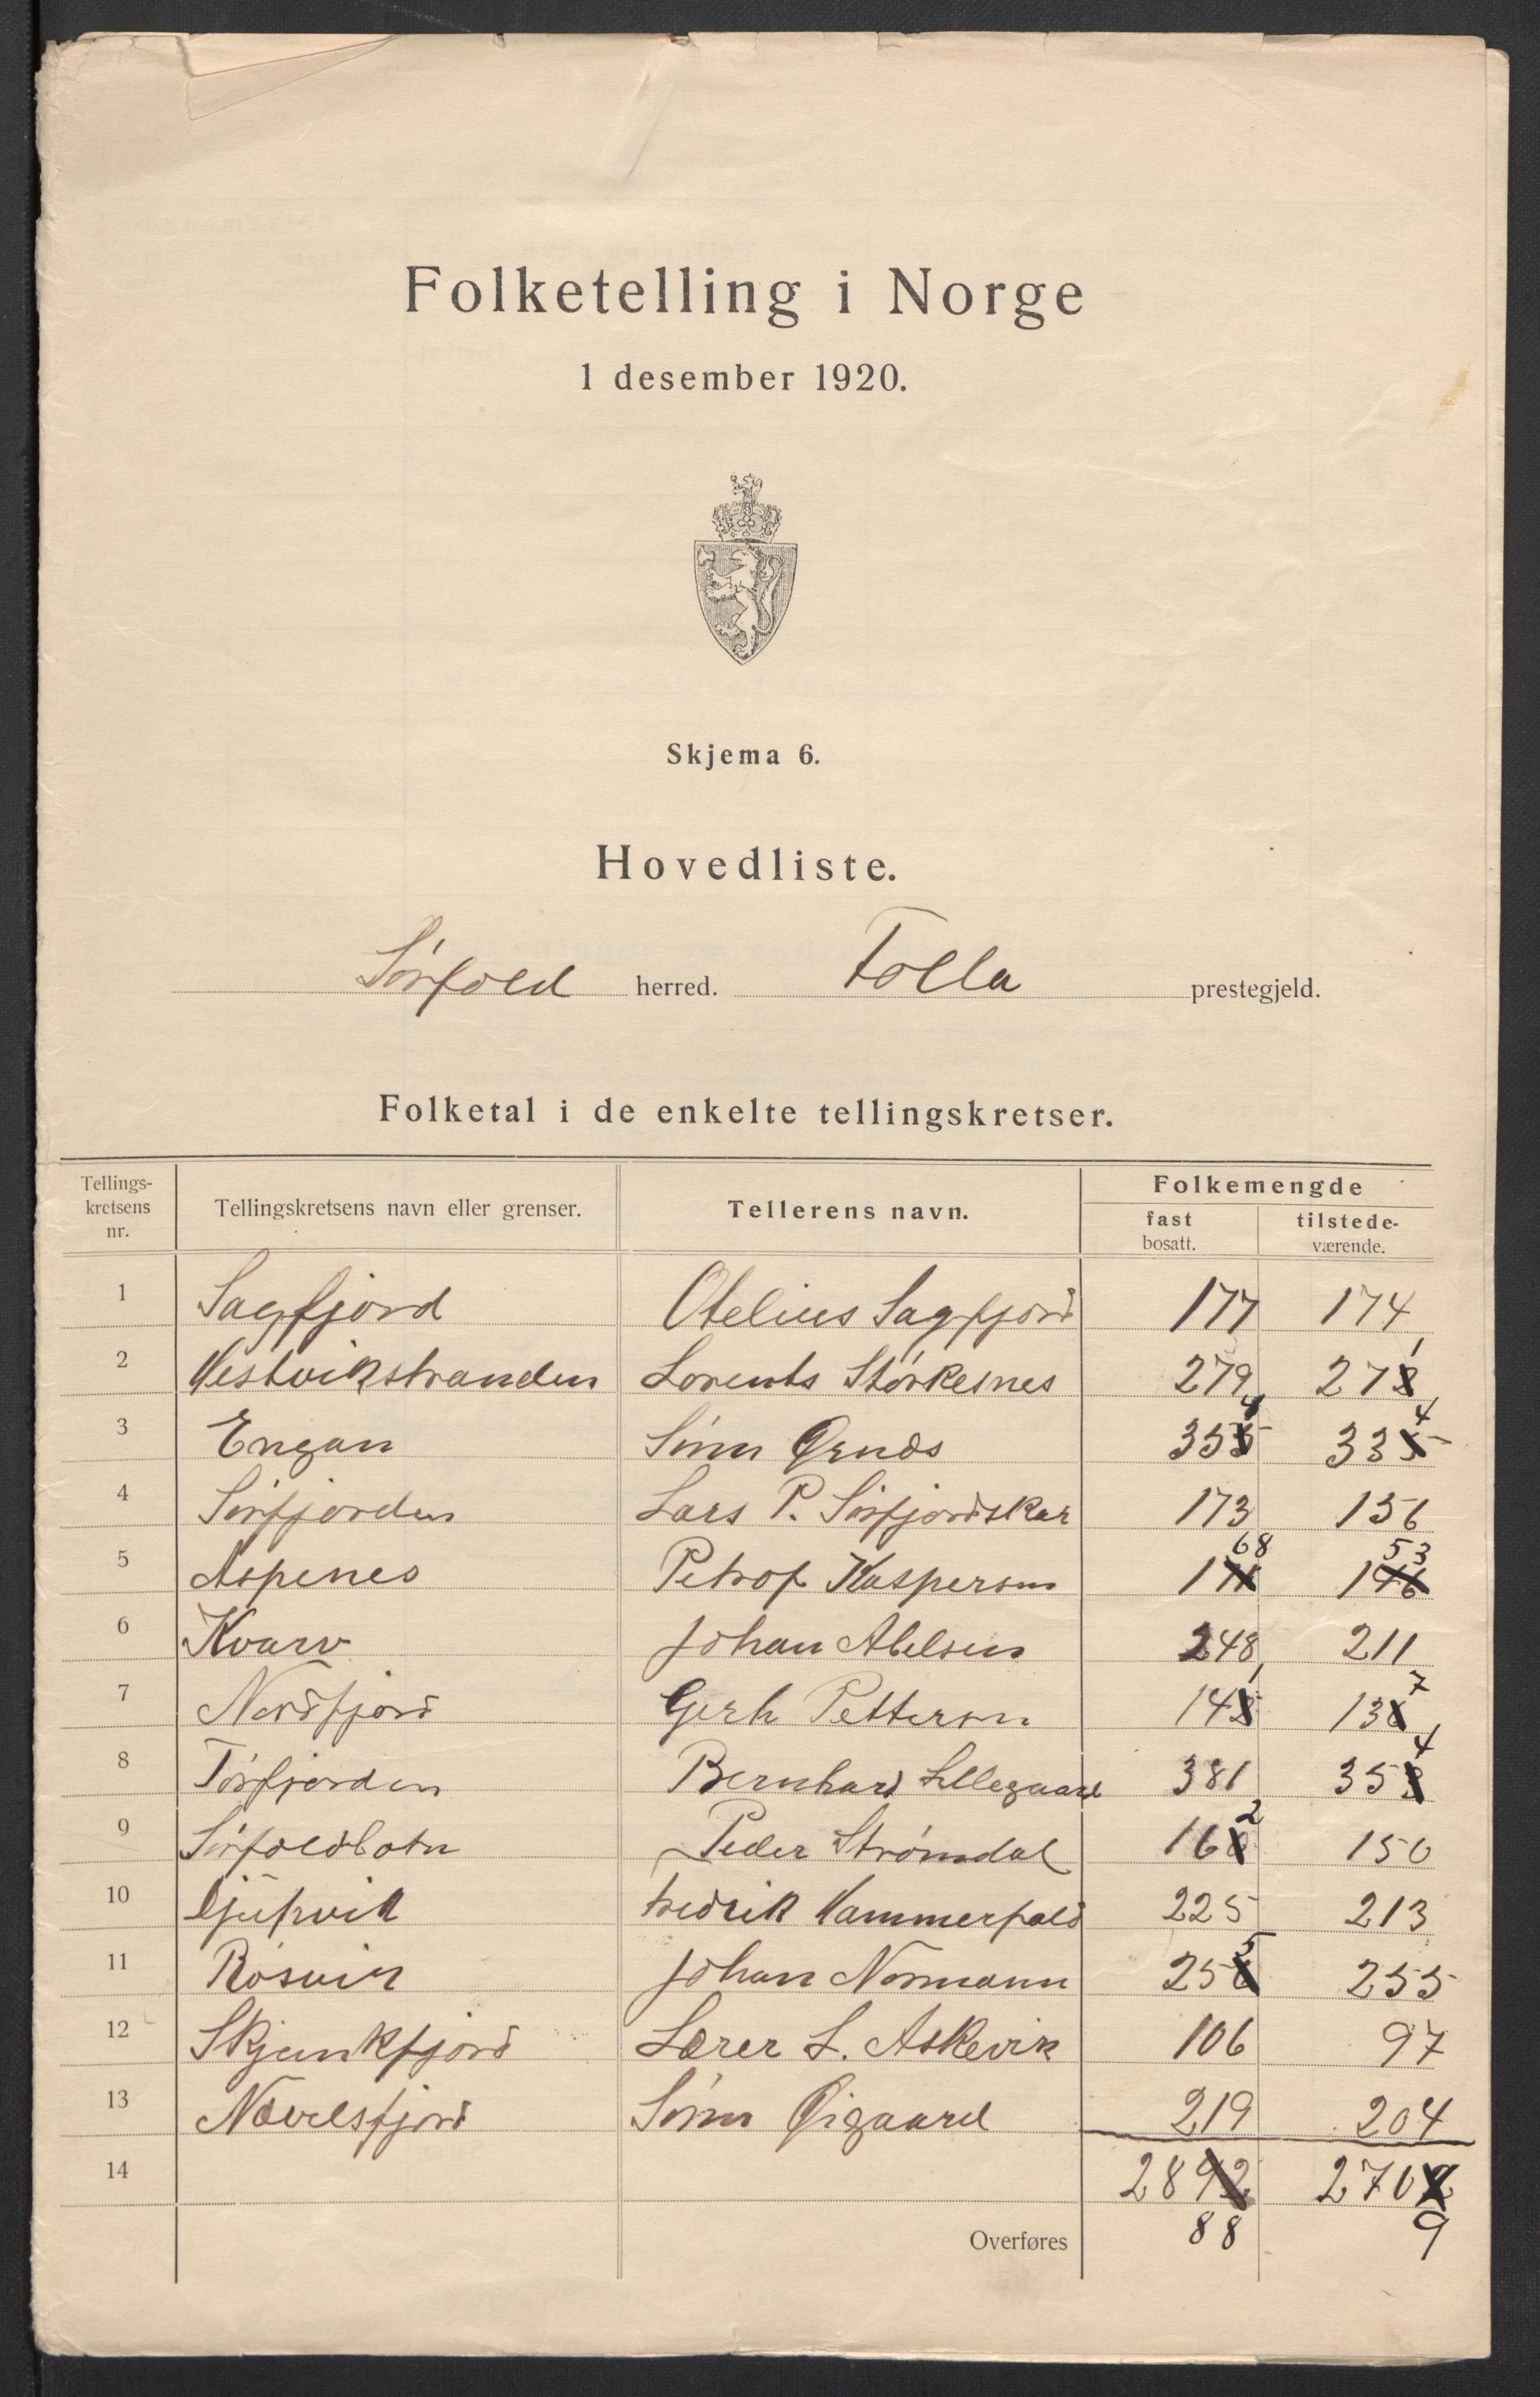 Folketelling i Norge
1 desember 1920.
Skjema 6.
Hovedliste.
Sørfold herred. Folla prestegjeld.
Folketal i de enkelte tellingskretser.
Tellings-kretsens nr. Tellingskretsens navn eller grenser. Tellerens navn. Folkemengde fast bosatt. tilstede-værende.
1 Sagfjord Otelius Sagfjord 177 174
2 Vestvikstranden Lorents Størkesnes 279 271
3 Engan Søren Ørnes 354 334
4 Sørfjorden Lars P. Sørfjordskar 173 156
5 Aspenes Petrof Kaspersen 168 153
6 Kvarv Johan Abelsen 248 211
7 Nordfjord Gerh Petterson 141 137
8 Tørfjorden Bernhard Lillegaard 381 354
9 Sørfoldbotn Peder Strømdal 162 150
10 Djupvik Fredrik Hammerfald 225 213
11 Røsvik Johan Normann 255 255
12 Skjunkfjord Lærer L. Askevik 106 97
13 Nævelsfjord Søren Øigaard 219 204
14 2892 270
Overføres 88 9